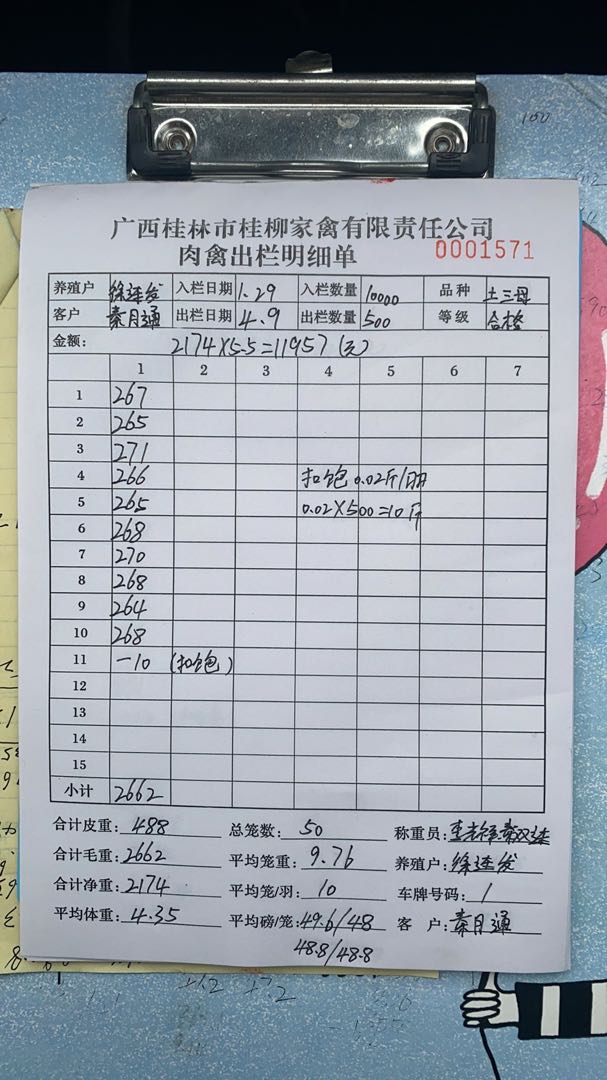 150
广西桂林市桂柳家禽有限责任公司
肉禽出栏明细单 0001571
养殖户 徐连发 入栏日期 1.29 入栏数量 10000 品种 土三母
客户 秦月通 出栏日期 4.9 出栏数量 500 等级 合格
金额: 2174×5.5=11957(元)
1 2 3 4 5 6 7
1 267
2 265
3 271
4 266 扣饱 0.02斤/羽
5 265 0.02×500=10斤
6 268
7 270
8 268
9 264
10 268
11 -10 (扣饱)
12
13
14
15
小计 2662
合计皮重: 488 总笼数: 50 称重员:
合计毛重: 2662 平均笼重: 9.76 养殖户: 徐连发
合计净重: 2174 平均笼/羽: 10 车牌号码: /
平均体重: 4.35 平均磅/笼: 49.6/48 客户: 秦月通
48.8/48.8